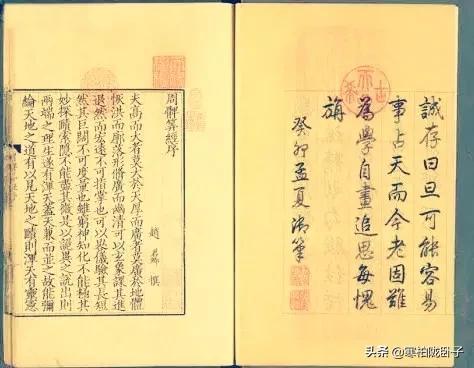 誠存曰旦可能容易
事占天而今老固難
為學自畫追思每愧
旃
癸卯孟夏御筆
周髀算經序
趙君卿 撰
夫高而大者莫大於天厚而廣者莫廣於地體
恢洪而廓落形脩廣而幽清可以玄象課其進
退然而宏遠不可指掌也可以晷儀驗其長短
然其巨闊不可度量也雖窮神知化不能極其
妙探賾索隱不能盡其微是以詭異之說出則
兩端之理生遂有渾天蓋天兼而並之故能彌
綸天地之道有以見天地之賾則渾天有靈憲
头条@寒柏陇卧子